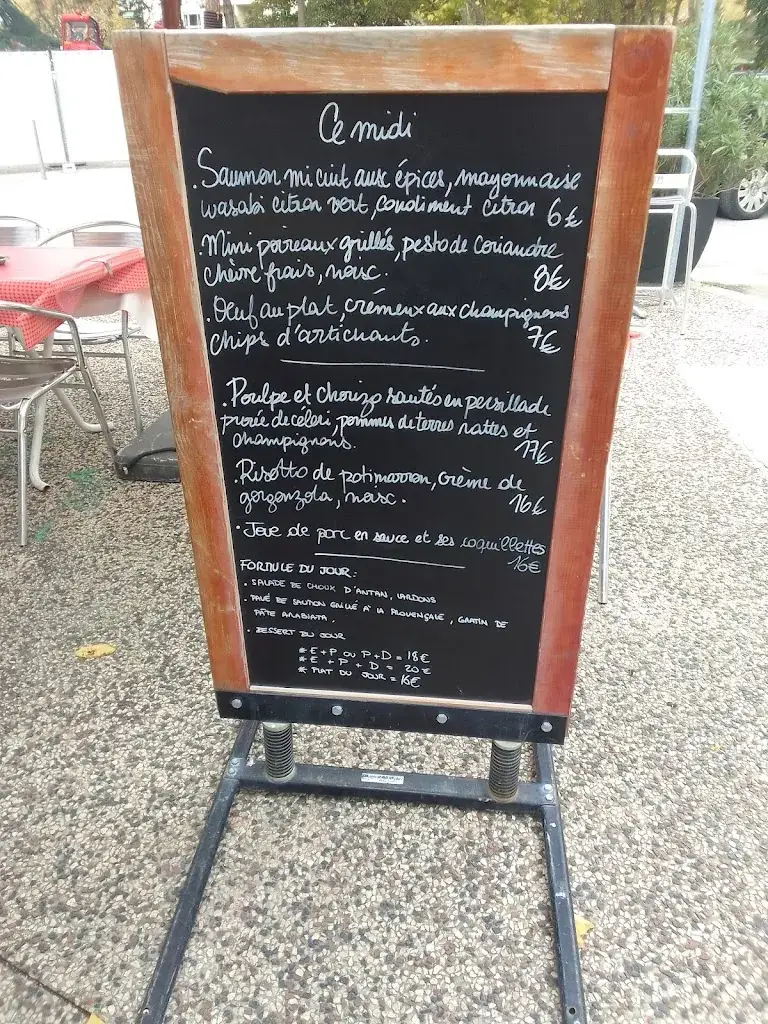 Ce midi
. Saumon mi cuit aux épices, mayonnaise
wasabi citron vert, condiment citron 6€
. Mini poireaux grillés, pesto de coriandre
chèvre frais, noix. 8€
. Oeuf au plat, crémeux aux champignons
chips d'artichauts. 7€
. Poulpe et chorizo sautés en persillade
purée de céleri, pommes de terres rattes et
champignons. 17€
. Risotto de potimarron, crème de
gorgonzola, noix. 16€
. Joue de porc en sauce et ses coquillettes
16€
FORMULE DU JOUR:
. SALADE DE CHOUX D'ANTAN, LARDONS
. PAVÉ DE SAUMON GRILLÉ À LA PROVENÇALE, GRATIN DE
PÂTE ARABIATA.
. DESSERT DU JOUR
* E + P OU P + D = 18€
* E + P + D = 20€
* PLAT DU JOUR = 16€